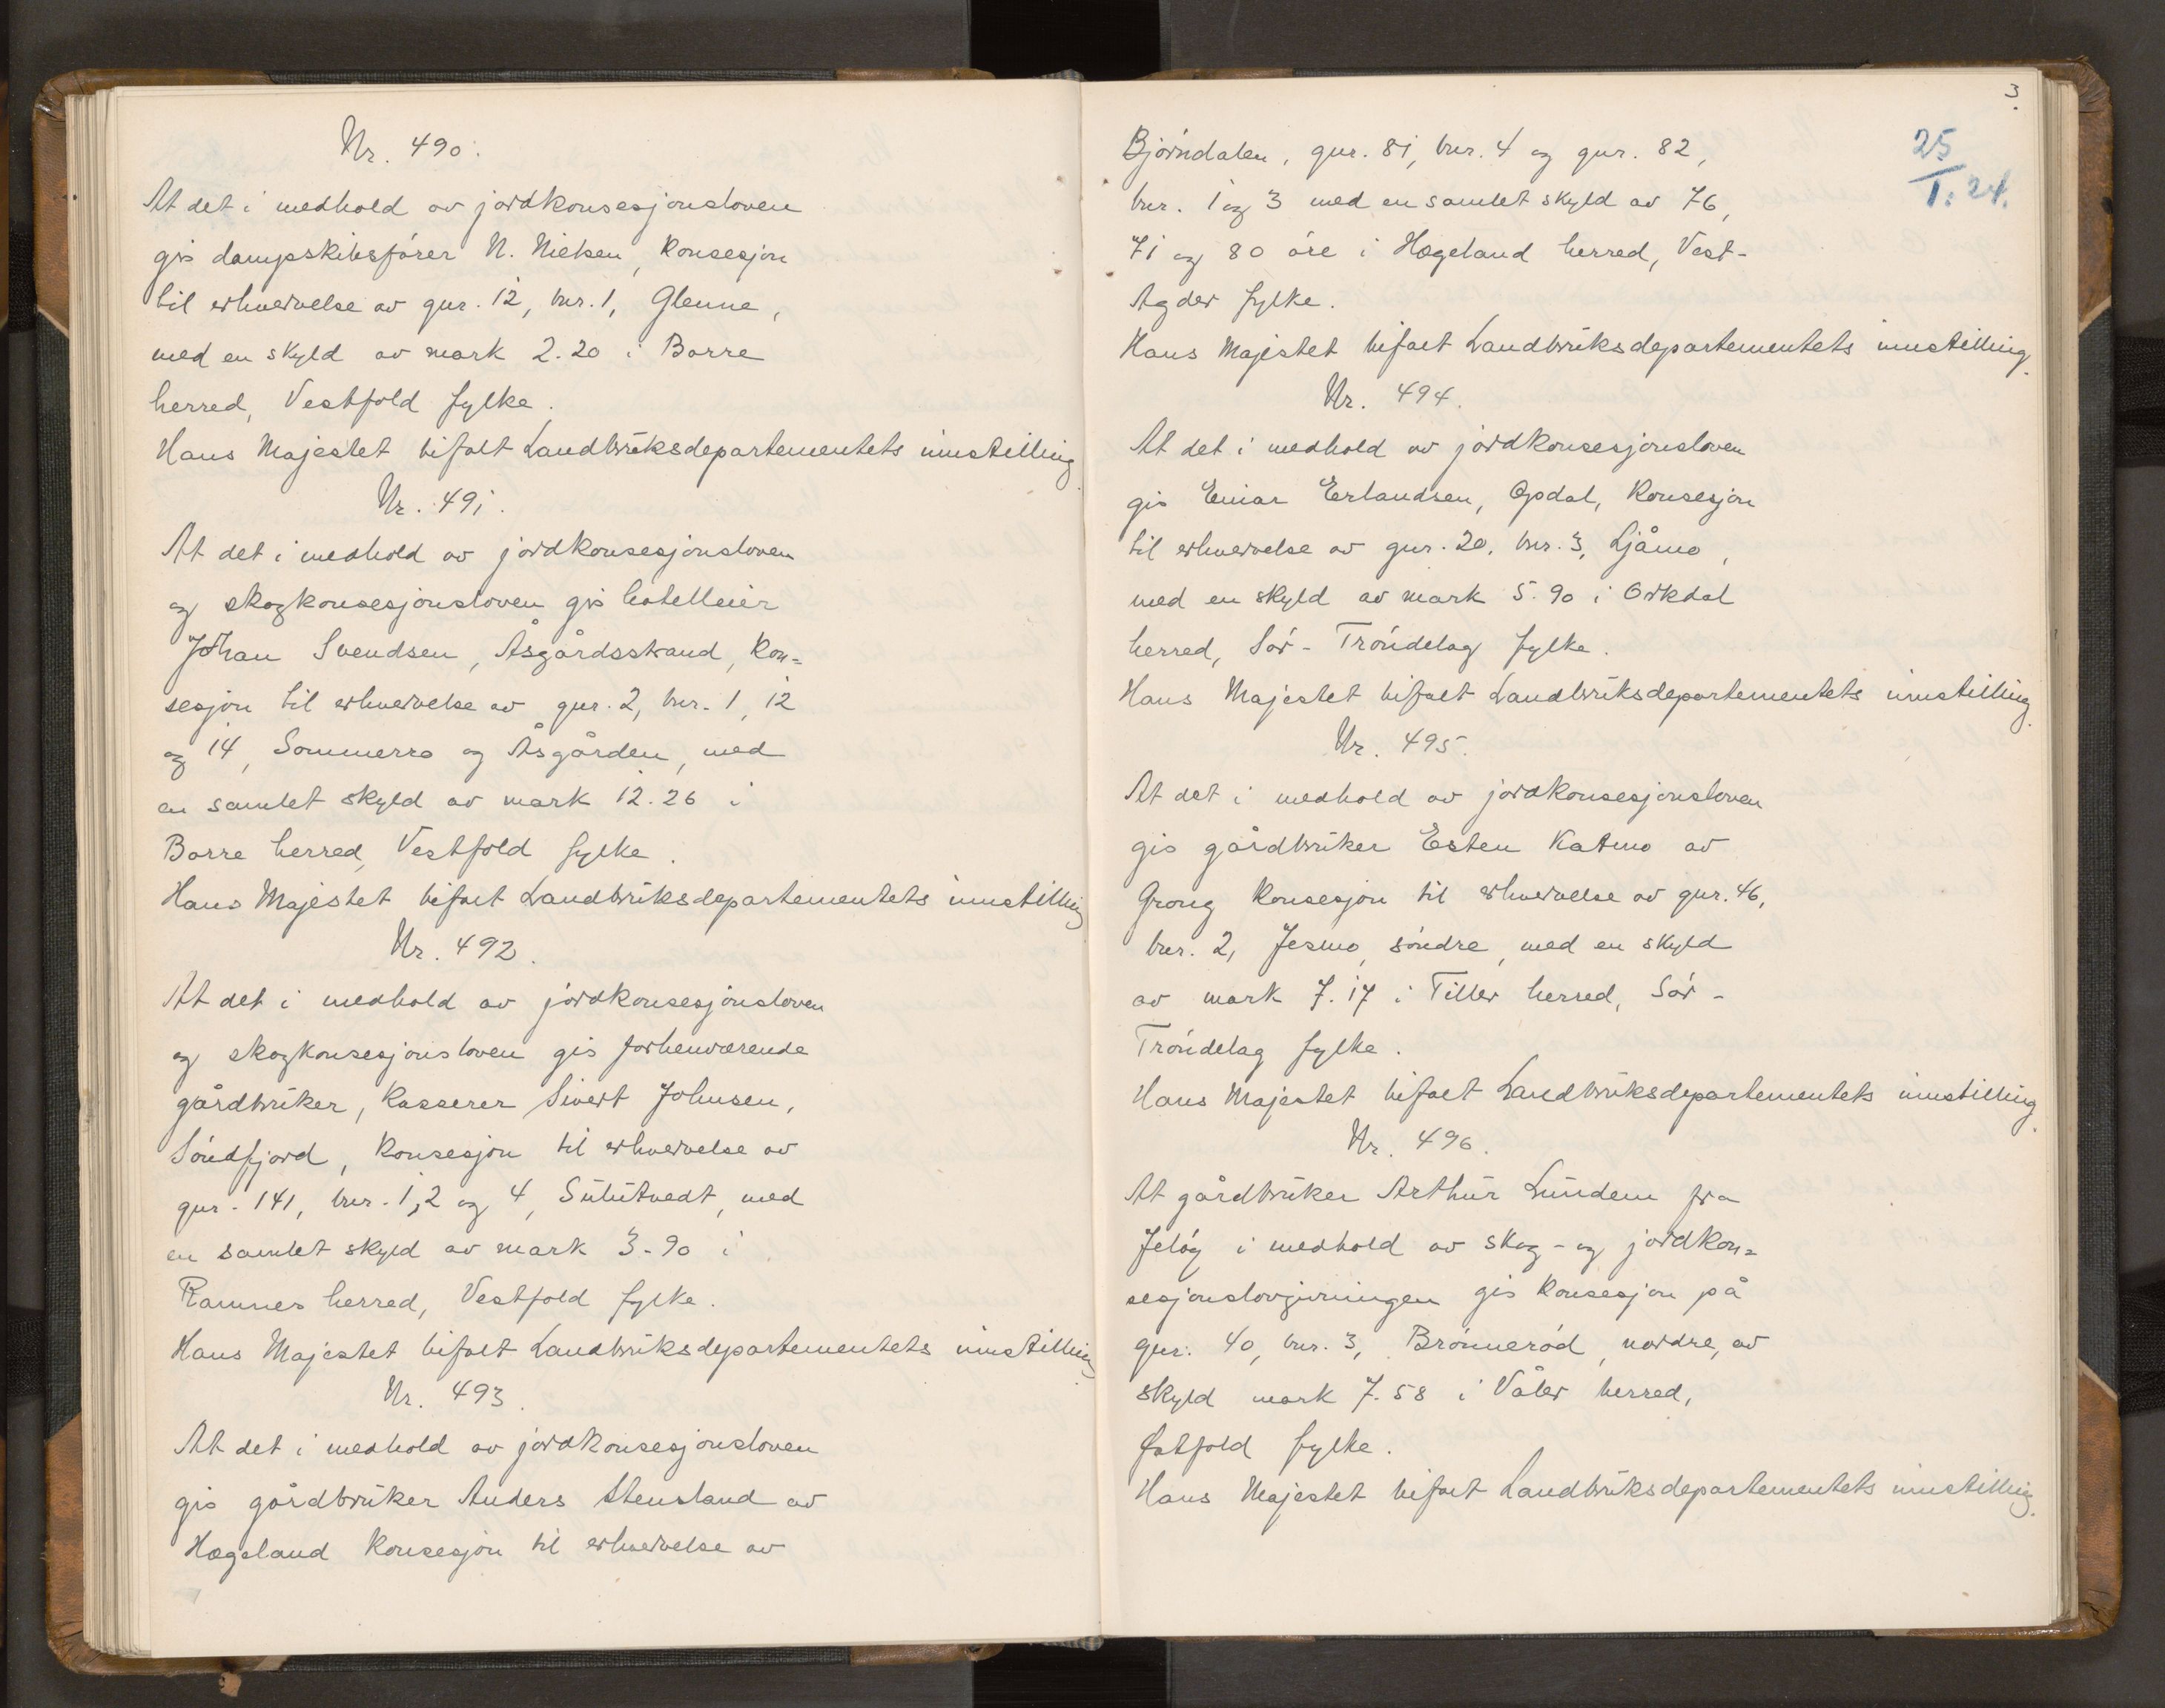 Nr. 490.
At det i medhold av jordkonsesjonsloven
gis dampskibsfører N. Nielsen, konsesjon
til erhvervelse av gnr. 12, bnr. 1, Glenne,
med en skyld av mark 2.20 i Borre
herred, Vestfold fylke.
Hans Majestet bifalt Landbruksdepartementets innstilling.
Nr. 491.
At det i medhold av jordkonsesjonsloven
og skogkonsesjonsloven gis hotelleier
Johan Svendsen, Åsgårdsstrand, kon=
sesjon til erhvervelse av gnr. 2, bnr. 1, 12
og 14, Sommerro og Åsgården, med
en samlet skyld av mark 12.26 i
Borre herred, Vestfold fylke.
Hans Majestet bifalt Landbruksdepartementets innstilling
Nr. 492.
At det i medhold av jordkonsesjonsloven
og skogkonsesjonsloven gis forhenværende
gårdbruker, kasserer Sivert Johnsen,
Søndfjord, konsesjon til erhvervelse av
gnr. 141, bnr. 1, 2 og 4, Sulutvedt, med
en samlet skyld av mark 3.90 i
Ramnes herred, Vestfold fylke.
Hans Majestet bifalt Landbruksdepartementets innstilling.
Nr. 493.
At det i medhold av jordkonsesjonsloven
gis gårdbruker Anders Stensland av
Hægeland konsesjon til erhvervelse av
3.
25
1. 24.
Bjørndalen, gnr. 81, bnr. 4 og gnr. 82,
bnr. 1 og 3 med en samlet skyld av 76,
71 og 80 øre i Hægeland herred, Vest-
Agder fylke.
Hans Majestet bifalt Landbruksdepartementets innstilling.
Nr. 494.
At det i medhold av jordkonsesjonsloven
gis Einar Erlandsen, Opdal, konsesjon
til erhvervelse av gnr. 20, bnr. 3, Ljåmo,
med en skyld av mark 5.90 i Orkdal
herred, Sør-Trøndelag fylke.
Hans Majestet bifalt Landbruksdepartementets innstilling.
Nr. 495.
At det i medhold av jordkonsesjonsloven
gis gårdbruker Esten Katmo av
Grong konsesjon til erhvervelse av gnr. 46,
bnr. 2, Jesmo, søndre, med en skyld
av mark 7.17 i Tiller herred, Sør-
Trøndelag fylke.
Hans Majestet bifalt Landbruksdepartementets innstilling.
Nr. 496.
At gårdbruker Arthur Lundem fra
Jeløy i medhold av skog- og jordkon=
sesjonslovgivningen gis konsesjon på
gnr. 40, bnr. 3, Brønnerød, nordre, av
skyld mark 7.58 i Våler herred,
Østfold fylke.
Hans Majestet bifalt Landbruksdepartementets innstilling.